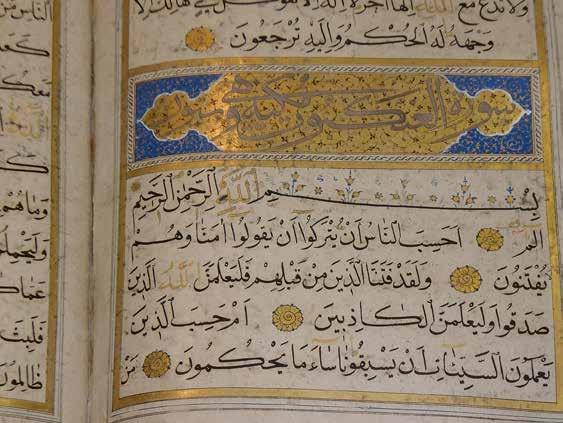 ولا تدع مع الله إلها آخر لا إله إلا هو كل شي هالك إلا
وَجْهَهُ لَهُ الْحُكْمُ وَإِلَيْهِ تُرْجَعُونَ
سورة العنكبوت
بِسْمِ اللَّهِ الرَّحْمَنِ الرَّحِيمِ
الم أَحَسِبَ النَّاسُ أَنْ يُتْرَكُوا أَنْ يَقُولُوا آمَنَّا وَهُمْ
يُفْتَنُونَ وَلَقَدْ فَتَنَّا الَّذِينَ مِنْ قَبْلِهِمْ فَلَيَعْلَمَنَّ اللَّهُ الَّذِينَ
صَدَقُوا وَلَيَعْلَمَنَّ الْكَاذِبِينَ أَمْ حَسِبَ الَّذِينَ
يَعْمَلُونَ السَّيِّئَاتِ أَنْ يَسْبِقُونَا سَاءَ مَا يَحْكُمُونَ مَنْ
الناس من
معكم
الله
وما هم
وليحملن
فلبث
ظالمون